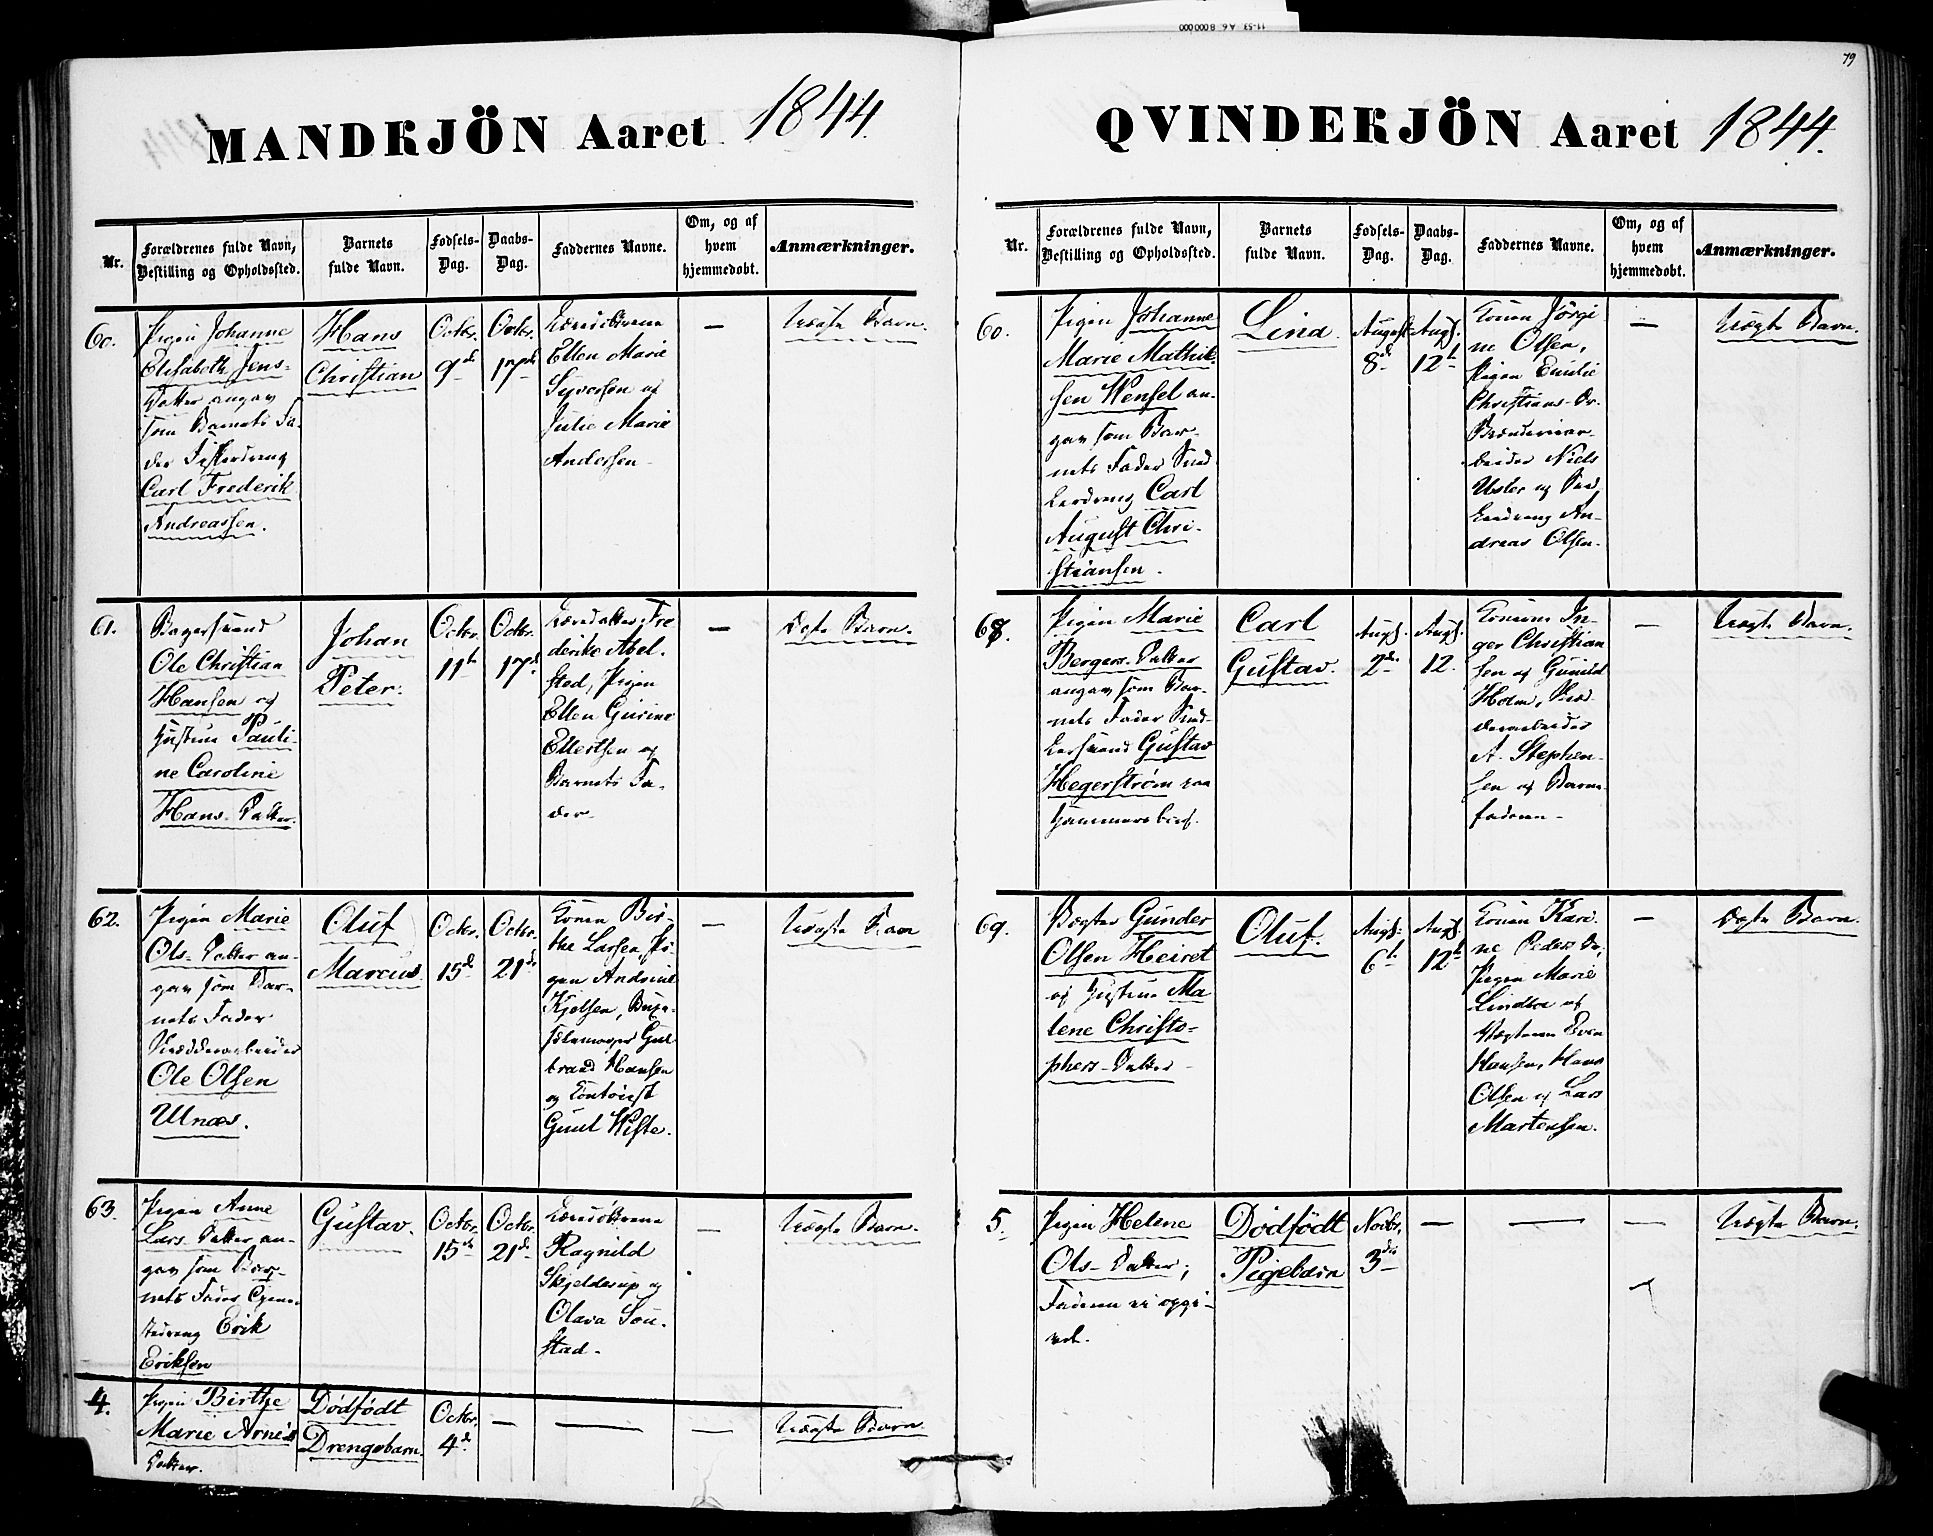 79
MANDKJÖN Aaret 1844.
Nr.
Forældrenes fulde Navn,
Bestilling og Opholdssted.
Barnets
fulde Navn.
Fødsels-
Dag.
Daabs-
Dag.
Faddernes Navne.
Om, og af
hvem
hjemmedøbt.
Anmærkninger.
60.
Pigen Johanne
Elisabeth Jens-
Datter angav
som Barnets Fa-
der
Carl Frederik
Andreassen.
Hans
Christian
Octbr.
9de
Octbr.
17de
Ellen Marie
Syversen og
Julie Marie
Andersen
—
Uægte Barn.
61.
Bagersvend
Ole Christian
Hansen og
Hustrue Pauli-
ne Caroline
Hans-Datter.
Johan
Peter.
Octbr.
11te
Octbr.
17de
Fre
derike Abel-
sted, Pigen
Ellen Gurine
Ellertsen og
Barnets Fa-
der.
—
Ægte Barn.
62.
Pigen Marie
Ols-Datter an-
gav som Bar-
nets Fader
Skrædderarbeider
Ole Olsen
Unæs.
Oluf
Marcus.
Octbr.
15de
Octbr.
21de
Konen Bir-
the Larsen, Pi-
gen Andrine
Kjelsen,
Gul
brand Hansen
og Contorist
Gunl Wiste.
—
Uægte Barn
63.
Pigen Anne
Lars-Datter an-
gav som Bar-
nets Fader
Erik
Eriksen
Gustav.
Octbr.
15de
Octbr.
21de
Ragnild
Skjelderup og
Olava Son-
stad.
—
Uægte Barn.
4.
Pigen Birthe
Marie Arnes
Datter.
Dödfödt
Drengebarn.
Octbr.
4de
—
—
—
Uægte Barn.
QVINDEKJÖN Aaret 1844.
Nr.
Forældrenes fulde Navn,
Bestilling og Opholdssted.
Barnets
fulde Navn.
Fødsels-
Dag.
Daabs-
Dag.
Faddernes Navne.
Om, og af
hvem
hjemmedøbt.
Anmærkninger.
60.
Pigen Johanne
Marie Mathie
sen Wensel an-
gav som Bar-
nets Fader Sned
kerdreng Carl
August Chri-
stiansen.
Lina
August
8de
Augs.
12te
Konen Jörgi
ne Olsen,
Pigen Emilie
Christians-Dr.
beider Niels
og Sned
kerdreng An-
dreas Olsen.
—
Uægte Barn.
68.
Pigen Marie
Bergers-Datter
angav som Bar-
nets Fader Sned-
kersvend Gustav
Hegerström paa
Carl
Gustav.
Augs.
2de
Augs.
12.
Konerne In-
ger Christian
sen og Gunild
Holm,
A. Stephen-
sen og Barne-
faderen.
—
Uægte Barn.
69.
Vægter Gunder
Olsen Heiret
og Hustrue Ma
lene Christo-
phers-Datter
Oluf.
Augs.
6te
Augs.
12te
Konen Kari-
ne Peders Dr,
Pigen Marie
Lindboe og
Vægterne Even
Hansen, Hans
Olsen og Lars
Martensen.
—
Ægte Barn.
5.
Pigen Helene
Ols-Datter;
Faderen ei opgi-
vet.
Dödfödt
Pigebarn
Novbr.
3die
—
—
—
Uægte Barn.